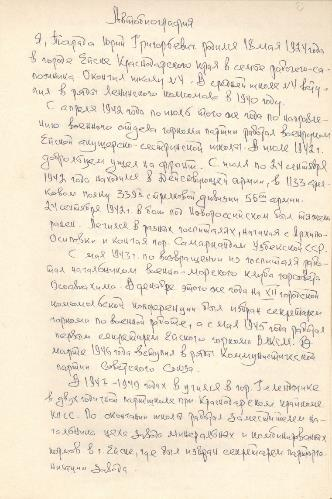 Автобиография
Я, Тарада Юрий Григорьевич родился 18 мая 1924 года
в городе Ейске Краснодарского края в семье рабочего-са-
пожника. Окончил школу №4. В средней школе №4 всту-
пил в ряды Ленинского комсомола в 1940 году.
С апреля 1942 года по июль того же года по направле-
нию военного отдела горкома партии работал военруком
Ейской акушерско-сестринской школы. В июле 1942 г.
добровольцем ушел на фронт. С июля по 24 сентября
1942 года находился в действующей армии, в 1133 стрел-
ковом полку 339й стрелковой дивизии 56й армии.
24 сентября 1942 г. в бою под Новороссийском был тяжело
ранен. Лечился в разных госпиталях, начиная с Архипо-
Осиповки и кончая гор. Самаркандом Узбекской ССР.
С мая 1943 г. по возвращении из госпиталя рабо-
тал начальником военно-морского клуба горсовета
Осоавиахима. В декабре этого же года на XII городской
комсомольской конференции был избран секретарем
горкома по военной работе, а с мая 1945 года работал
первым секретарем Ейского горкома ВЛКСМ. В
марте 1946 года вступил в ряды Коммунистической
партии Советского Союза.
В 1947-1949 годах я учился в гор. Геленджике
в двухгодичной партшколе при Краснодарском крайкоме
КПСС. По окончании школы работал заместителем на-
чальника цеха завода минеральных и комбинированных
кормов в г. Ейске, где был избран секретарем парторга-
низации завода.